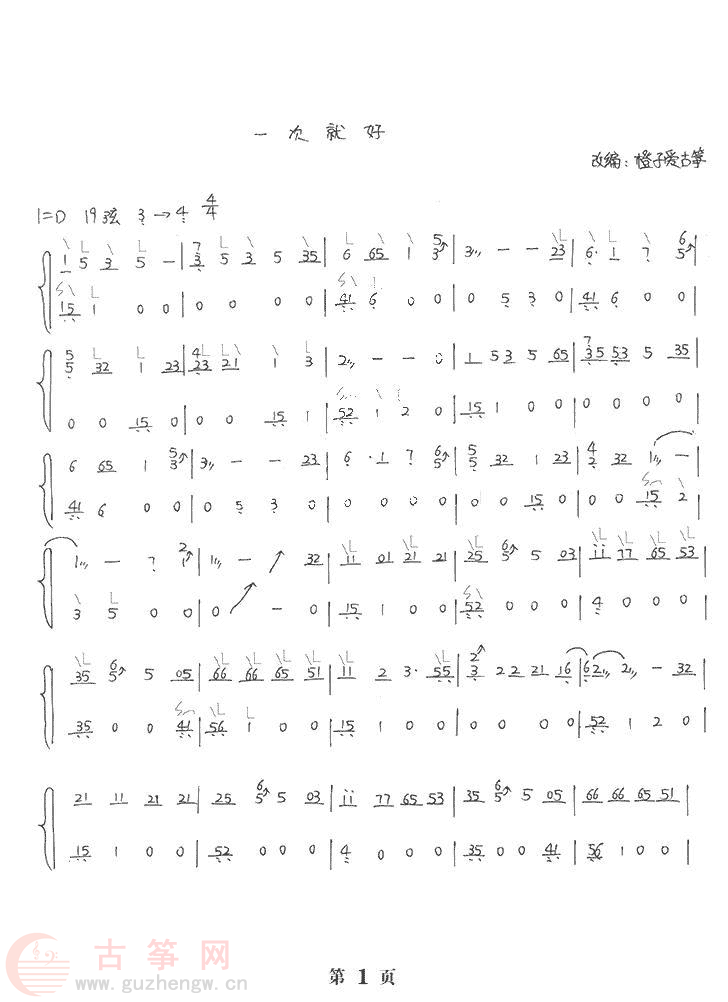 一次就好
改编：橙子爱古筝
1=D 19弦 3→4 4/4
1 5 3 5 — | 7/3 5 3 5 35 | 6 65 1 5/3 | 3 — — 23 | 6· 1 7 6/5 |
15 1 0 0 | 0 0 0 0 | 41 6 0 0 | 0 5 3 0 | 41 6 0 0 |
5/5 32 1 23 | 4/23 21 1 3 | 2 — — 0 | 1 53 5 65 | 7/35 53 5 35 |
0 0 15 0 | 0 0 15 1 | 52 1 2 0 | 15 1 0 0 | 0 0 0 0 |
6 65 1 5/3 | 3 — — 23 | 6· 1 7 6/5 | 5/5 32 1 23 | 4/2 32 1 — |
41 6 0 0 | 0 5 3 0 | 0 0 0 0 | 0 0 15 0 | 0 0 15 2 |
1 — 7 2/1 | 1 — ↗ 32 | 11 01 21 21 | 25 6/5 5 03 | 11 77 65 53 |
3 5 0 0 | 0 ↗ — 0 | 15 1 0 0 | 52 0 0 0 | 4 0 0 0 |
35 6/5 5 05 | 66 66 65 51 | 11 2 3· 55 | 2/3 2 2 21 16 | 6 2 2 — 32 |
35 0 0 41 | 56 1 0 0 | 15 1 0 0 | 0 0 0 0 | 52 1 2 0 |
21 11 21 21 | 25 6/5 5 03 | 11 77 65 53 | 35 6/5 5 05 | 66 66 65 51 |
15 1 0 0 | 52 0 0 0 | 4 0 0 0 | 35 0 0 41 | 56 1 0 0 |
古筝网
www.guzhengw.cn
第 1 页